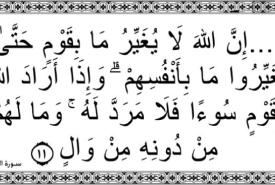 ...إِنَّ اللهَ لَا يُغَيِّرُ مَا بِقَوْمٍ حَتَّى
يُغَيِّرُوا مَا بِأَنْفُسِهِمْ ۗ وَإِذَا أَرَادَ اللهُ
بِقَوْمٍ سُوءًا فَلَا مَرَدَّ لَهُ ۚ وَمَا لَهُمْ
مِنْ دُونِهِ مِنْ وَالٍ ﴿١١﴾
سورة